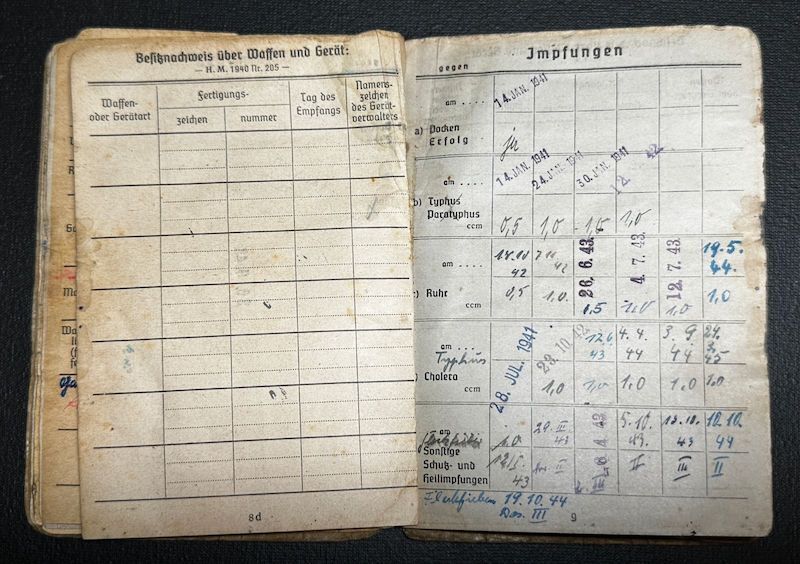 Besitznachweis über Waffen und Gerät:
— H. M. 1940 Nr. 205 —
Waffen- oder Gerätart
Fertigungs-
zeichen
nummer
Tag des Empfangs
Namens- zeichen des Gerät- verwalters
8d
Impfungen
gegen
am . . . . 14. JAN. 1941
a) Pocken
Erfolg ja
am . . . . 14. JAN. 1941 24. JAN. 1941 30. JAN. 1941 12. 42
b) Typhus
Paratyphus
ccm 0,5 1,0 1,0
am . . . . 42 42 26. 6. 43 4. 7. 43 12. 7. 43 19.5. 44.
c) Ruhr
ccm 0,5 1,0 0,5 1,0 1,0 1,0
am . . . . 28. JUL. 1941 23. 10. 42 12.6. 43 4. 4. 44 3. 9. 44 24. 3. 45
Typhus
d) Cholera
ccm 1,0 1,0 1,0 1,0 1,0
am 1,0 29. III. 43 4. 43 5.10. 43. 13.10. 43 10.10. 44
Sonstige
Schutz- und
Heilimpfungen 43 III II III II
Fleckfieber 19.10.44
Dos. III
9